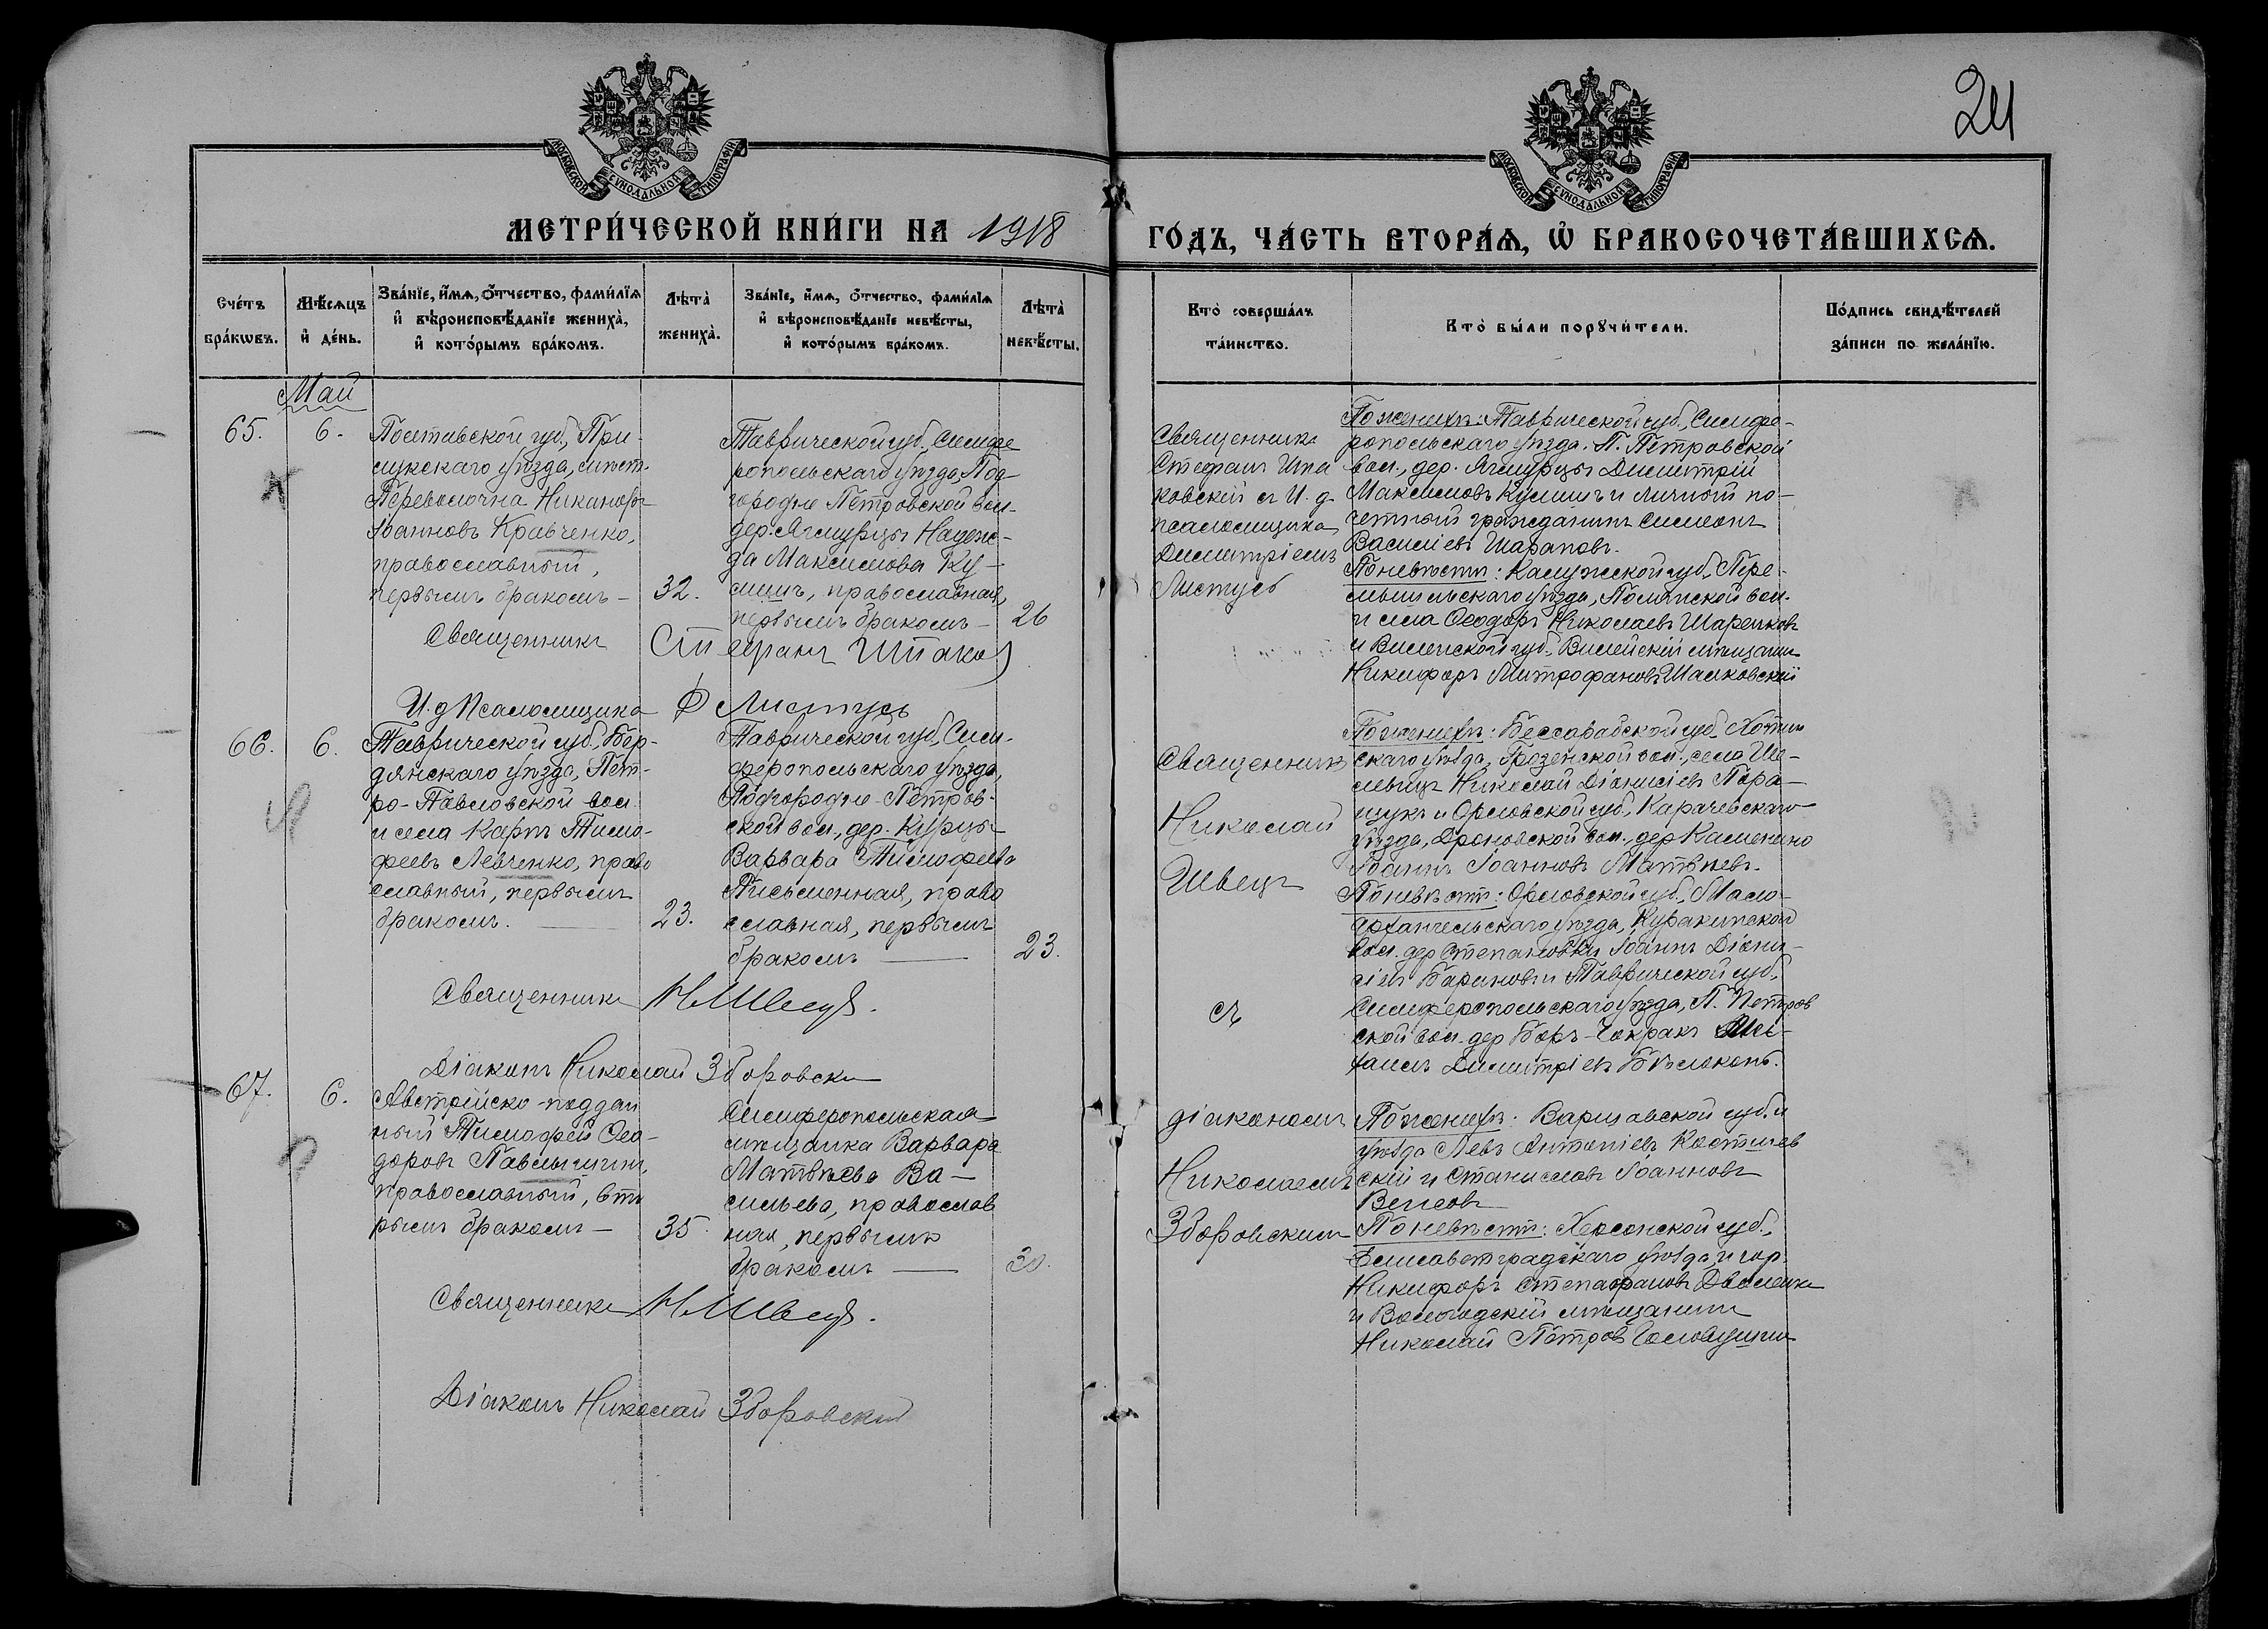 24
МОСКОВСКОЙ СѴНОДАЛЬНОЙ ТИПОГРАФІИ
МОСКОВСКОЙ СѴНОДАЛЬНОЙ ТИПОГРАФІИ
МЕТРИ́ЧЕСКОЙ КНИ́ГИ НА 1918
ГО́ДЪ, ЧА́СТЬ ВТОРА́Ѧ, Ѡ БРАКОСОЧЕТА́ВШИХСѦ.
Сче́тъ
бра́кωвъ.
Мѣ́сяцъ
и҆ де́нь.
Зва́нїе, и҆́мѧ, ѻ҆́тчество, фами́лїѧ
и҆ вѣроисповѣ́данїе жениха̀,
и҆ кото́рымъ бра́комъ.
Лѣта̀
жениха̀.
Зва́нїе, и҆́мѧ, ѻ҆́тчество, фами́лїѧ
и҆ вѣроисповѣ́данїе невѣ́сты,
и҆ кото́рымъ бра́комъ.
Лѣта̀
невѣ́сты.
Кто̀ соверша́лъ
та́инство.
Кто̀ бы́ли порꙋчи́тели.
По́дпись свидѣ́телей
за́писи по жела́нїю.
Май
65.
6.
Полтавской губ., При-
лукскаго уѣзда, мѣст.
Переволочна Никаноръ
Іоанновъ Кравченко,
православный,
первымъ бракомъ —
32.
Таврической губ., Симфе
ропольскаго уѣзда, Под-
городне Петровской вол.
дер. Ягмурцы Надеж-
да Максимова Ку-
лишъ, православная,
первымъ бракомъ —
26
Священникъ
Стефанъ Шпако
ковскій съ И. д.
псаломщика
Димитріемъ
Листусъ
По женихѣ: Таврической губ., Симфе-
ропольскаго уѣзда. П. Петровской
вол., дер. Ягмурцы Димитрій
Максимовъ Кулишъ и личный по-
четный гражданинъ Симеонъ
Василіевъ Шараповъ.
По невѣстѣ: Калужской губ., Пере-
мышльскаго уѣзда, вол.
и села Ѳеодоръ Николаевъ
и Виленской губ., Вилейскій мѣщанинъ
Никифоръ Митрофановъ
Священникъ Стефанъ Шпако
И. д Псаломщика Д Листусъ
66.
6.
Таврической губ., Бер-
дянскаго уѣзда, Пет-
ро-Павловской вол.
и села Карпъ Тимо-
феевъ Левченко, право
славный, первымъ
бракомъ. —
23.
Таврической губ., Сим-
феропольскаго уѣзда,
Подгородне-Петров-
ской вол., дер. Курцы
Варвара Тимофеева
Письменная, право
славная, первымъ
бракомъ —
23.
Священникъ
Николай
Швецъ
съ
По женихѣ: Бессарабской губ. Хотин
скаго уѣзда, Грозенской вол., села Ше-
Николай Діонисіевъ Пара-
щукъ и Орловской губ., Карачевскаго
уѣзда, Дроновской вол., дер
Іоаннъ Іоанновъ Матвѣевъ.
По невѣстѣ: Орловской губ., Мало-
архангельскаго уѣзда, Куракинской
вол. дер Степановки Іоаннъ Діони-
сіевъ Бариновъ и Таврической губ.,
Симферопольскаго уѣзда, П. Петров
ской вол. дер Боръ-Чокракъ
Димитріевъ Бѣлоконь.
Священникъ Н. Швецъ.
Діаконъ Николай Зборовскій
67.
6.
Австрійско-поддан
ный Тимофей Ѳео-
доровъ Павлышинъ,
православный, вто
рымъ бракомъ —
35.
Симферопольская
мѣщанка Варвара
Матвѣева Ва-
сильева, православ
ная, первымъ
бракомъ —
30.
діакономъ
Николаемъ
Зборовскимъ
По женихѣ: Варшавской губ. и
уѣзда Левъ Антоніевъ
и Станиславъ Іоанновъ
По невѣстѣ: Херсонской губ.,
Елисаветградскаго уѣзда и гор.
Никифоръ
и Вологодскій мѣщанинъ
Николай Петровъ Голоду
Священникъ Н. Швецъ.
Діаконъ Николай Зборовскій